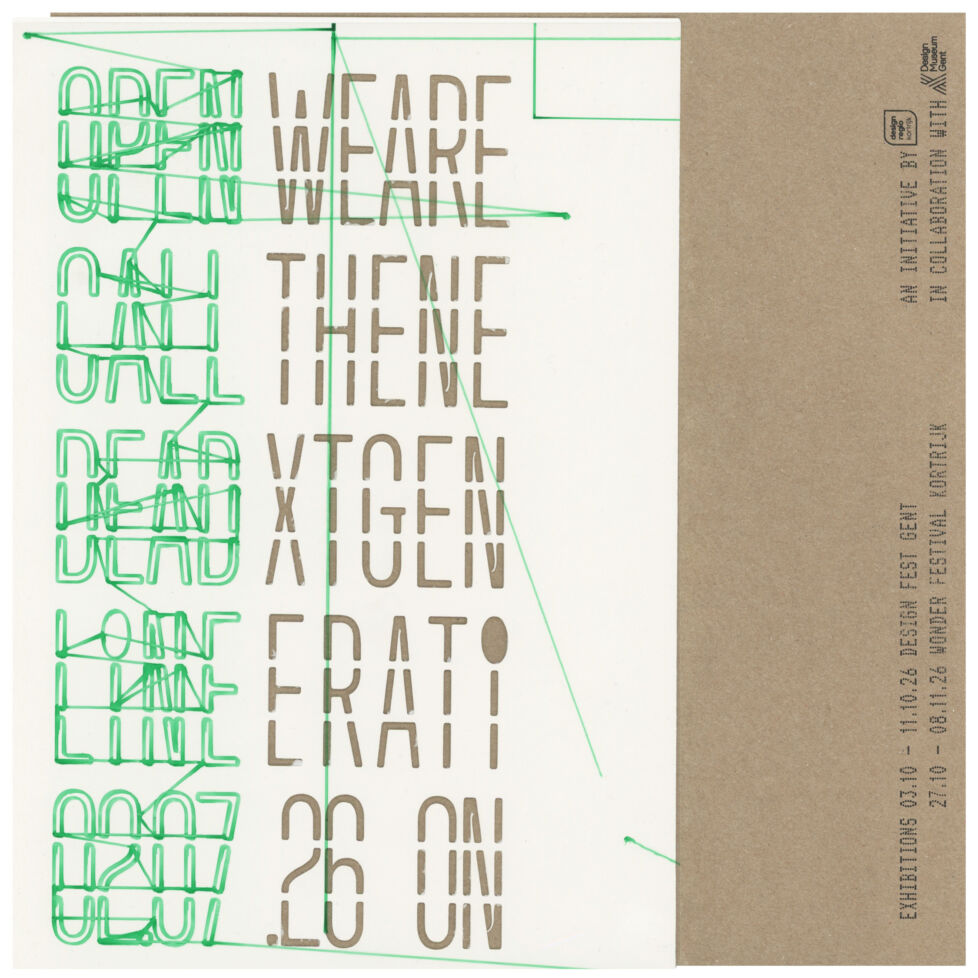 OPEN WEARE
CALL THENE
DEAD XTGEN
LINE ERATI
02.07.26 ON
EXHIBITIONS 03.10 – 11.10.26 DESIGN FEST GENT
27.10 – 08.11.26 WONDER FESTIVAL KORTRIJK
AN INITIATIVE BY design regio kortrijk
IN COLLABORATION WITH Design Museum Gent